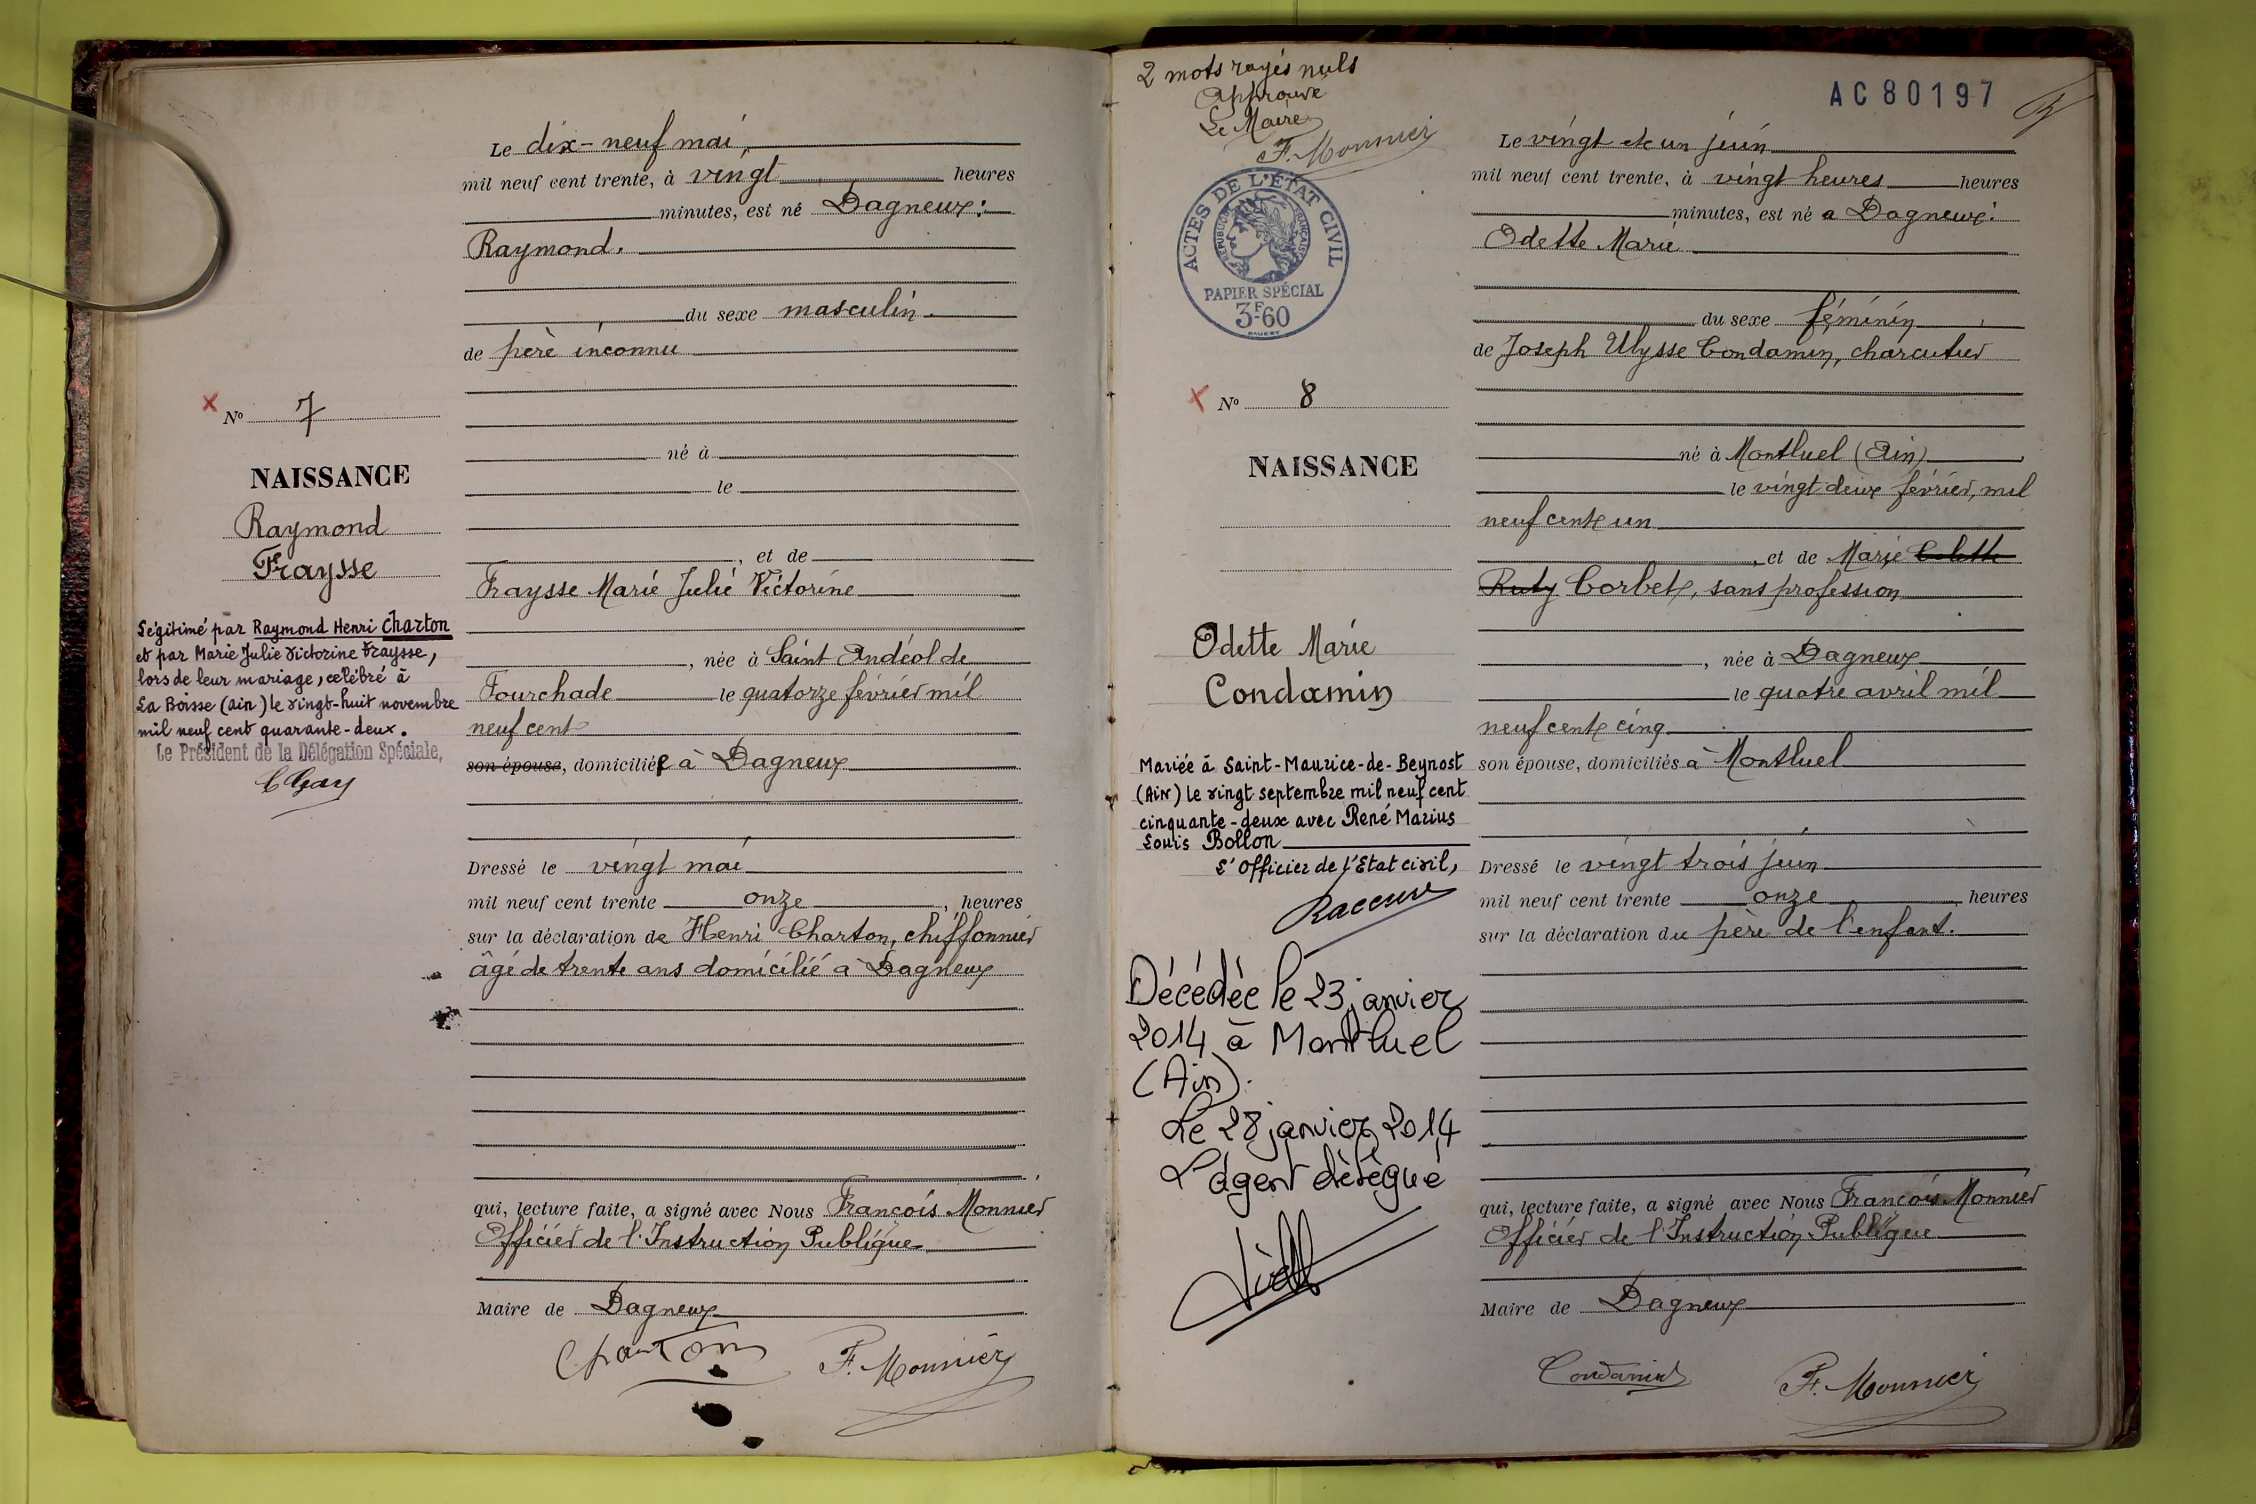 Le dix-neuf mai,
mil neuf cent trente, à vingt heures
minutes, est né Dagneux:
Raymond.
du sexe masculin.
de père inconnu
N° 7
né à
NAISSANCE
le
Raymond
Fraysse
, et de
Fraysse Marie Julie Victorine
Légitimé par Raymond Henri Charton
et par Marie Julie Victorine Fraysse,
lors de leur mariage, célébré à
La Boisse (Ain) le vingt-huit novembre
mil neuf cent quarante-deux.
Le Président de la Délégation Spéciale,
, née à Saint Andéol de
Fourchade le quatorze février mil
neuf cent
son épouse, domiciliée à Dagneux
Dressé le vingt mai
mil neuf cent trente onze, heures
sur la déclaration de Henri Charton, chiffonnier
âgé de trente ans domicilié à Dagneux
qui, lecture faite, a signé avec Nous François Monnier
Officier de l'Instruction Publique
Maire de Dagneux
Charton F. Monnier
2 mots rayés nuls
Approuvé
Le Maire
F. Monnier
AC80197
ACTES DE L'ÉTAT CIVIL
RÉPUBLIQUE FRANÇAISE
PAPIER SPÉCIAL
3F60
Le vingt et un juin
mil neuf cent trente, à vingt heures heures
minutes, est né a Dagneux:
Odette Marie
du sexe féminin
de Joseph Ulysse Condamin, charcutier
N° 8
né à Montluel (Ain)
NAISSANCE
le vingt deux février, mil
neuf cent un
, et de Marie Colette
Ruty Corbet, sans profession
Odette Marie
Condamin
, née à Dagneux
le quatre avril mil
neuf cent cinq
son épouse, domiciliés à Montluel
Mariée à Saint-Maurice-de-Beynost
(Ain) le vingt septembre mil neuf cent
cinquante-deux avec René Marius
Louis Bollon
L'Officier de l'Etat civil,
Dressé le vingt trois juin
mil neuf cent trente onze, heures
sur la déclaration du père de l'enfant.
Décédée le 23 janvier
2014 à Montluel
(Ain).
Le 28 janvier 2014
L'agent délégué
qui, lecture faite, a signé avec Nous François Monnier
Officier de l'Instruction Publique
Maire de Dagneux
Condamin F. Monnier